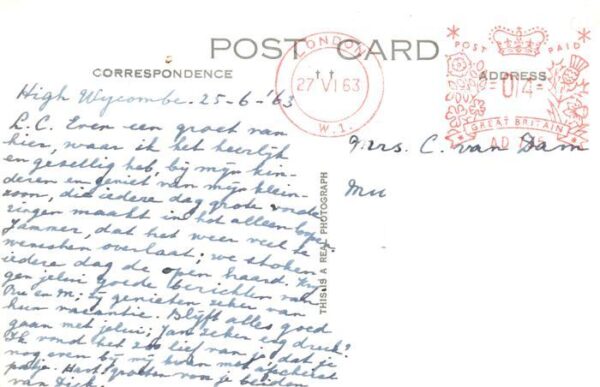 POST CARD
CORRESPONDENCE
ADDRESS
LONDON
27 VI 63
W.1.
POST PAID
014
GREAT BRITAIN
AD
High Wycombe. 25-6-'63
L.C. Even een groet van
hier, waar ik het heerlijk
en gezellig heb, bij mijn kin-
deren en geniet van mijn klein-
zoon, die iedere dag grote vorde-
ringen maakt in het alleen lopen
Jammer, dat het weer veel te
wenschen overlaat; we stoken
iedere dag de open haard.
gen jelui goede berichten van
en M; zij genieten zeker van
hun vacantie. Blijft alles goed
gaan met jelui; Jan zeker erg druk?
Ik vond het zoo lief van je, dat je
nog even bij mij kwam met afscheids
Hart. groeten voor je beiden
van Dick.
Mrs. C. van Dam
THIS IS A REAL PHOTOGRAPH